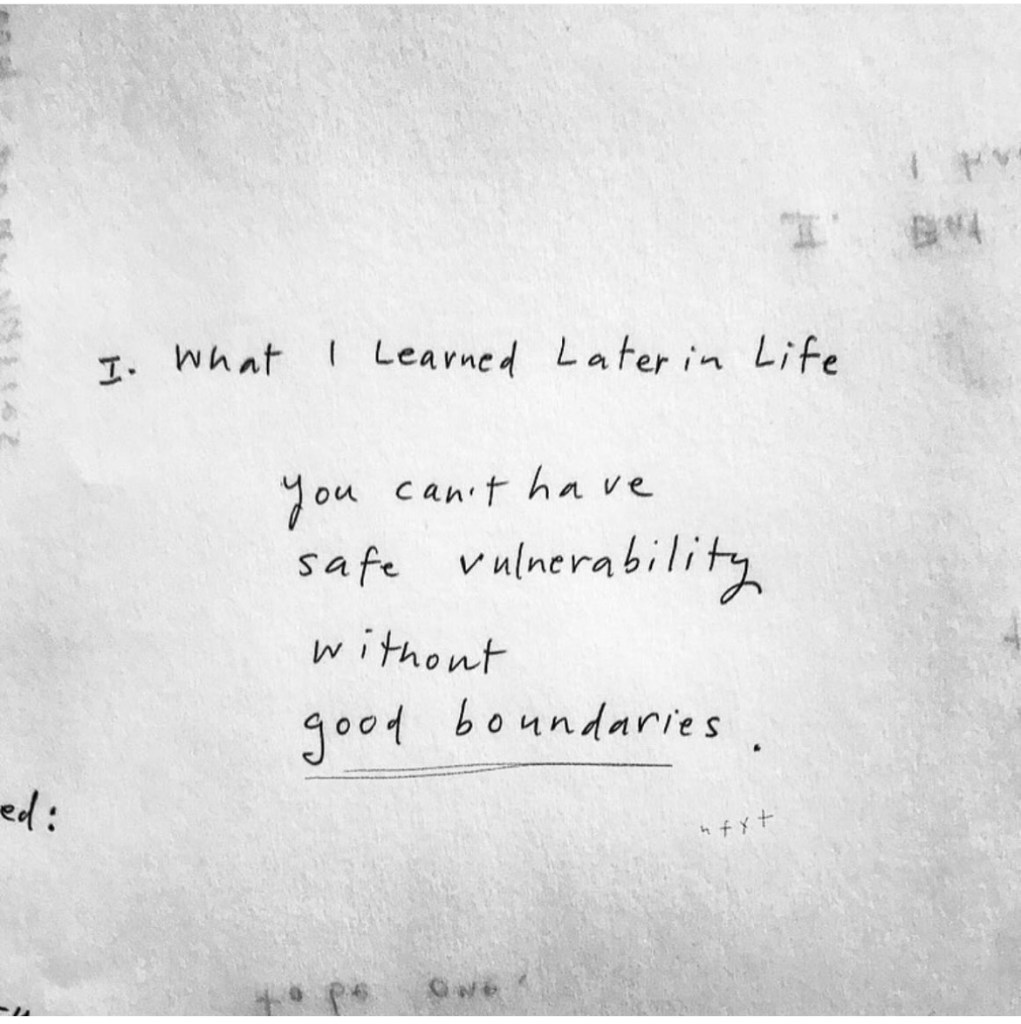 I. What I Learned Later in Life
you can't have
safe vulnerability
without
good boundaries.
ed: